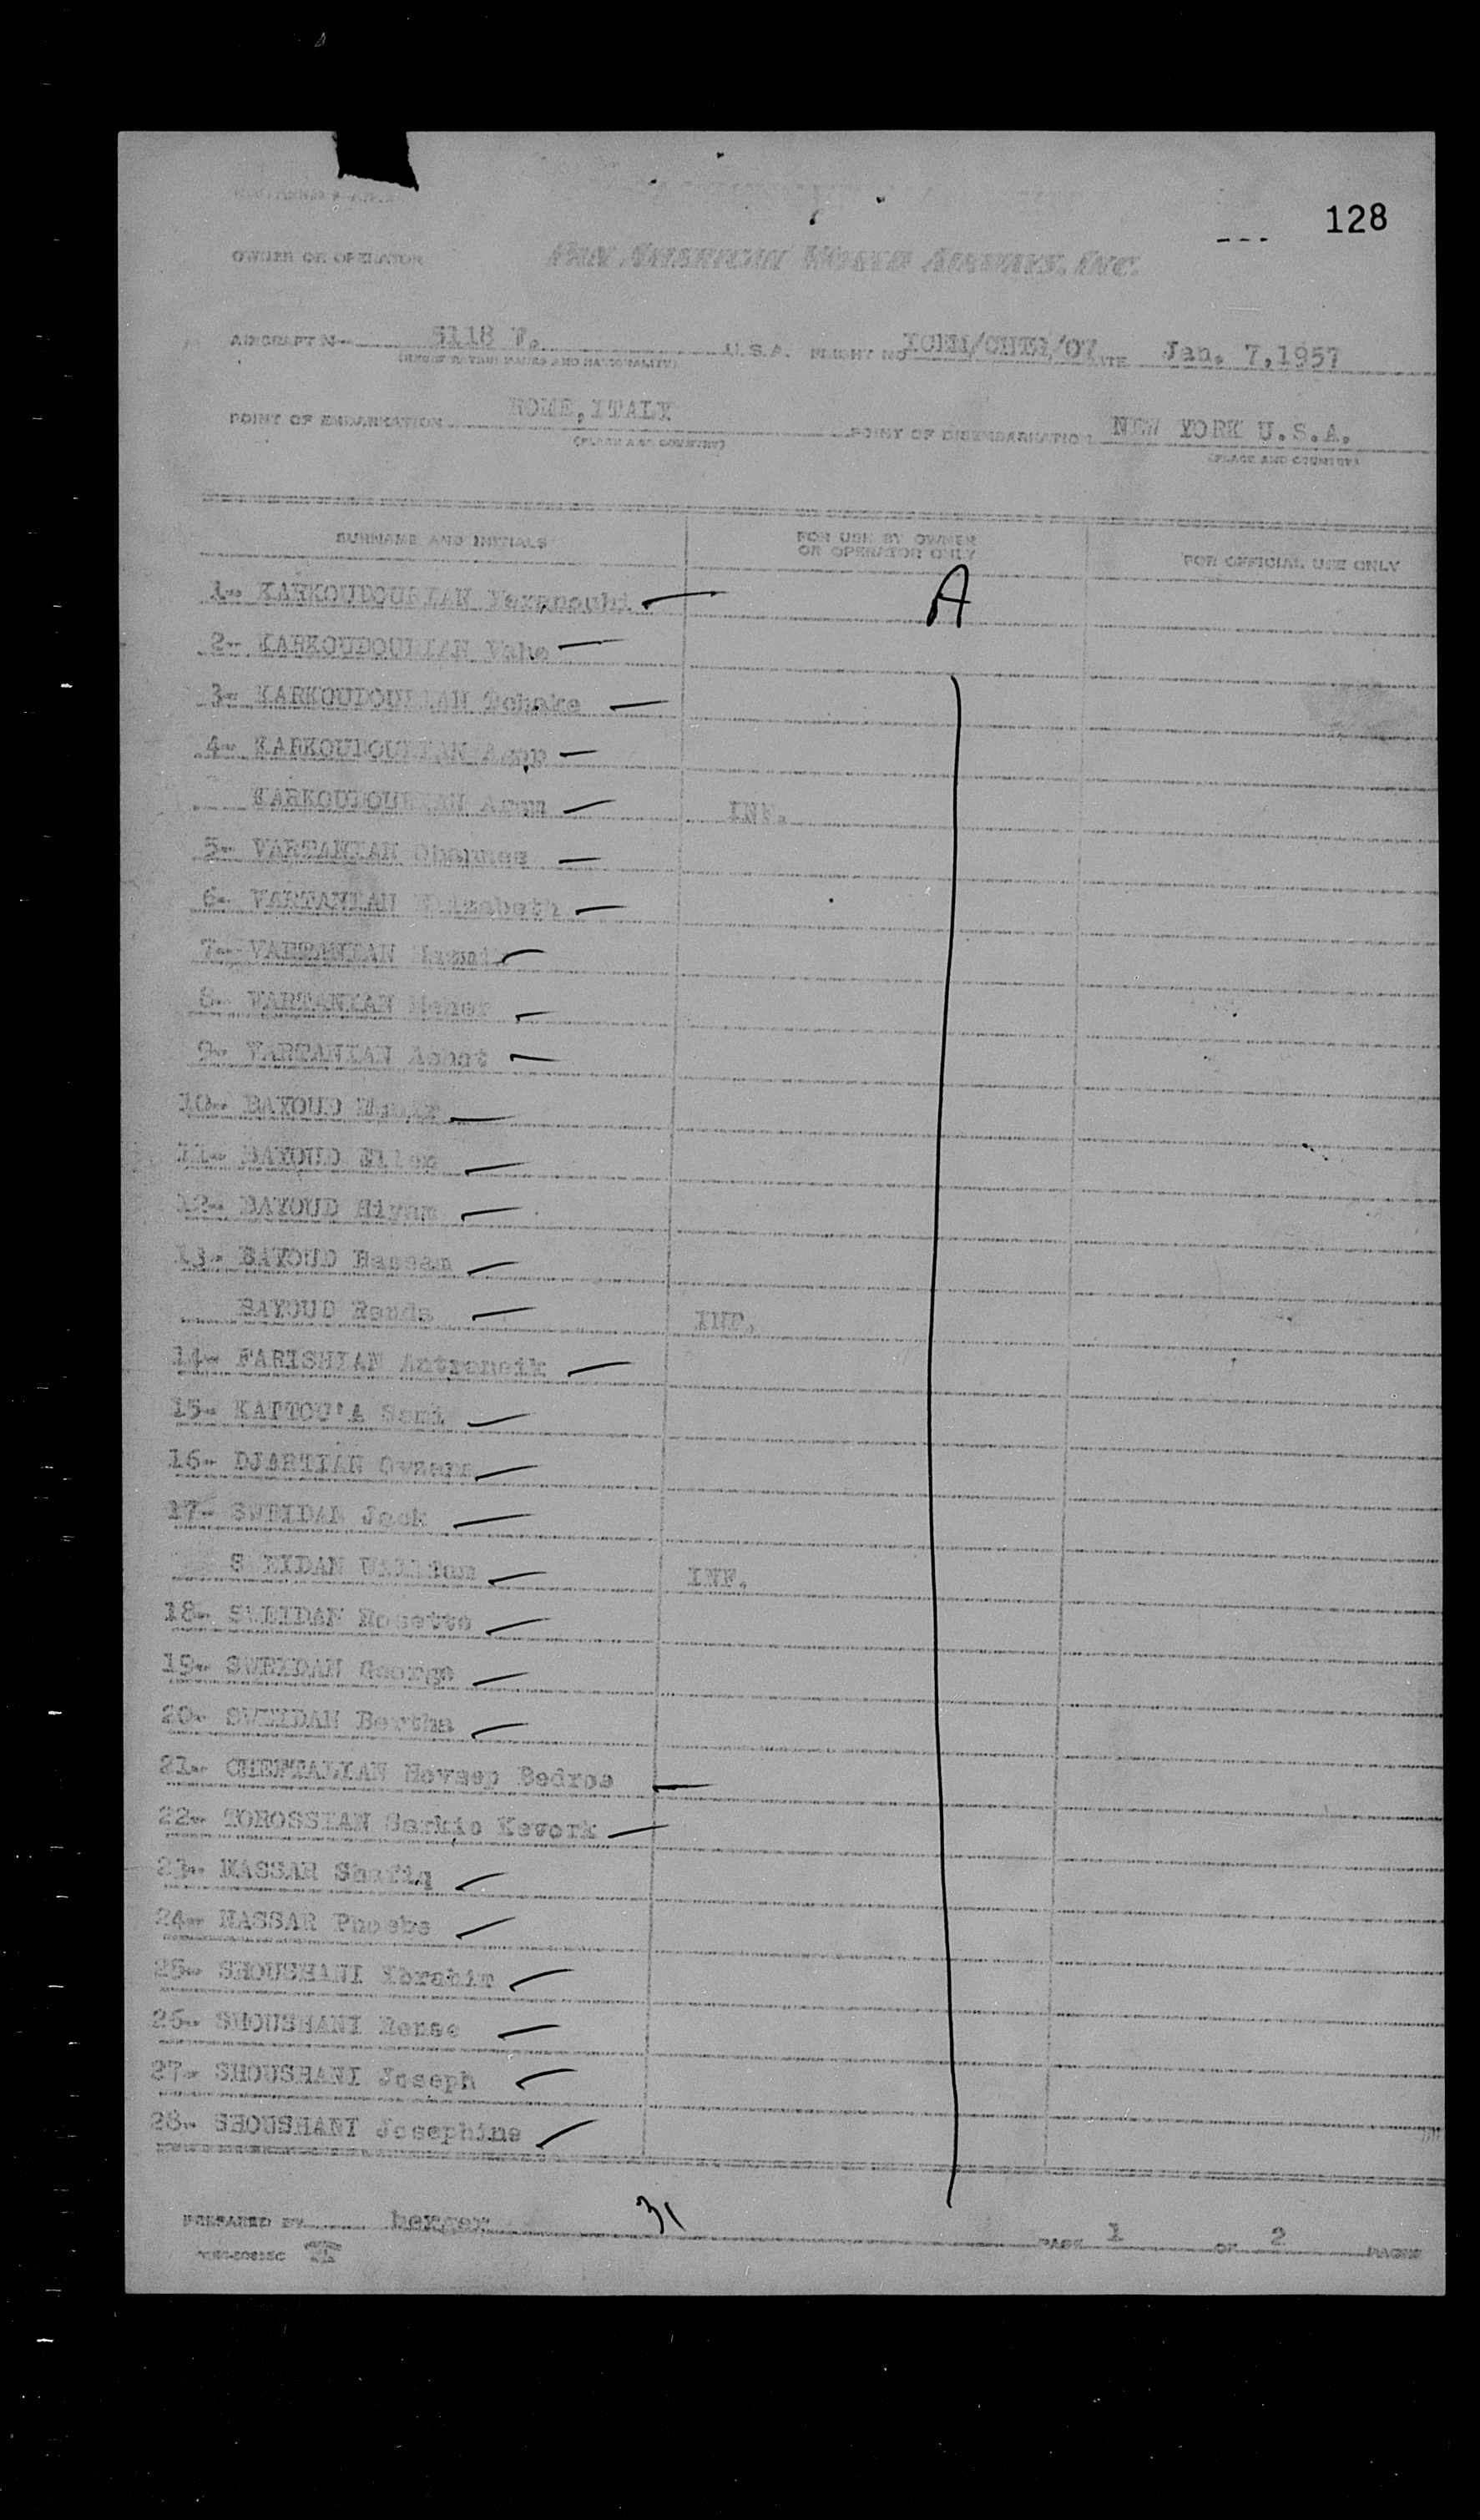 128
OWNER OR OPERATOR PAN AMERICAN WORLD AIRWAYS, INC.
AIRCRAFT N- 5118 V. U.S.A. FLIGHT NO ICEM/CHEA/07 DATE Jan. 7,1957
(REGISTRATION MARKS AND NATIONALITY)
POINT OF EMBARKATION ROME, ITALY POINT OF DISEMBARKATION NEW YORK U.S.A.
(PLACE AND COUNTRY) (PLACE AND COUNTRY)
SURNAME AND INITIALS FOR USE BY OWNER OR OPERATOR ONLY FOR OFFICIAL USE ONLY
1- KARKOUDOURIAN Yeranouhi A
2- KARKOUDOURIAN Vahe
3- KARKOUDOURIAN
4- KARKOUDOURIAN Agop
KARKOUDOURIAN Aram INF.
5- VARTANIAN Ohannes
6- VARTANIAN Elizabeth
7- VARTANIAN
8- VARTANIAN Meher
9- VARTANIAN Ashot
10- BAYOUD
11- BAYOUD Ellen
12- BAYOUD Hiyam
13- BAYOUD Bassam
BAYOUD Randa INF.
14- PARISHIAN Antraneik
15- KATTOU'A Sami
16- DJARTIAN
17- SWEIDAN Jack
S EIDAN William INF.
18- SWEIDAN Rosette
19- SWEIDAN George
20- SWEIDAN Bertha
21- CHEFTALIAN Hovsep Bedros
22- TOROSSIAN Sarkis Kevork
23- NASSAR Shafiq
24- NASSAR Phoebe
25- SHOUSHANI Ibrahim
26- SHOUSHANI Renee
27- SHOUSHANI Joseph
28- SHOUSHANI Josephine
PREPARED BY berger 31 PAGE 1 OF 2 PAGES